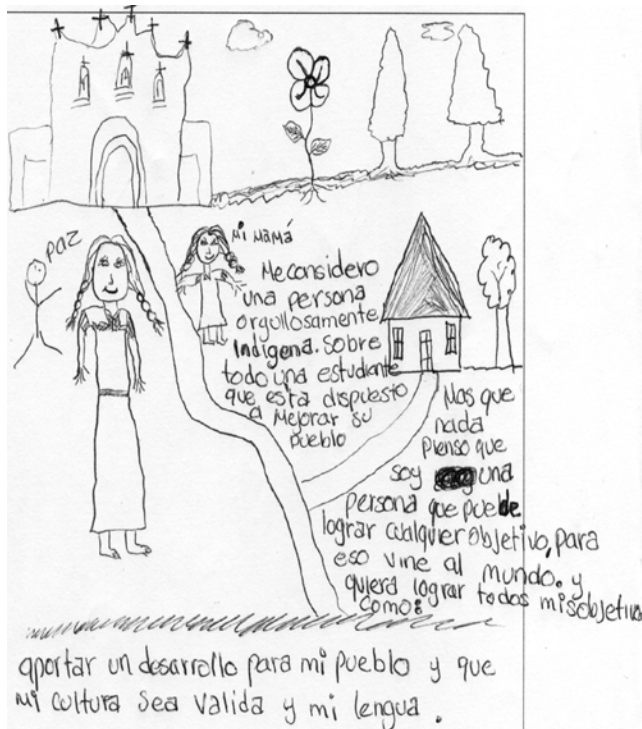 paz
Mi Mamá
Me considero
una persona
orgullosamente
Indígena. Sobre
todo una estudiante
que esta dispuesto
a Mejorar su
pueblo
Mas que
nada
Pienso que
soy una
persona que puede
lograr cualquier objetivo, para
eso vine al mundo. y
quiera lograr todos mis objetivo
como:
aportar un desarrollo para mi pueblo y que
mi cultura sea valida y mi lengua.